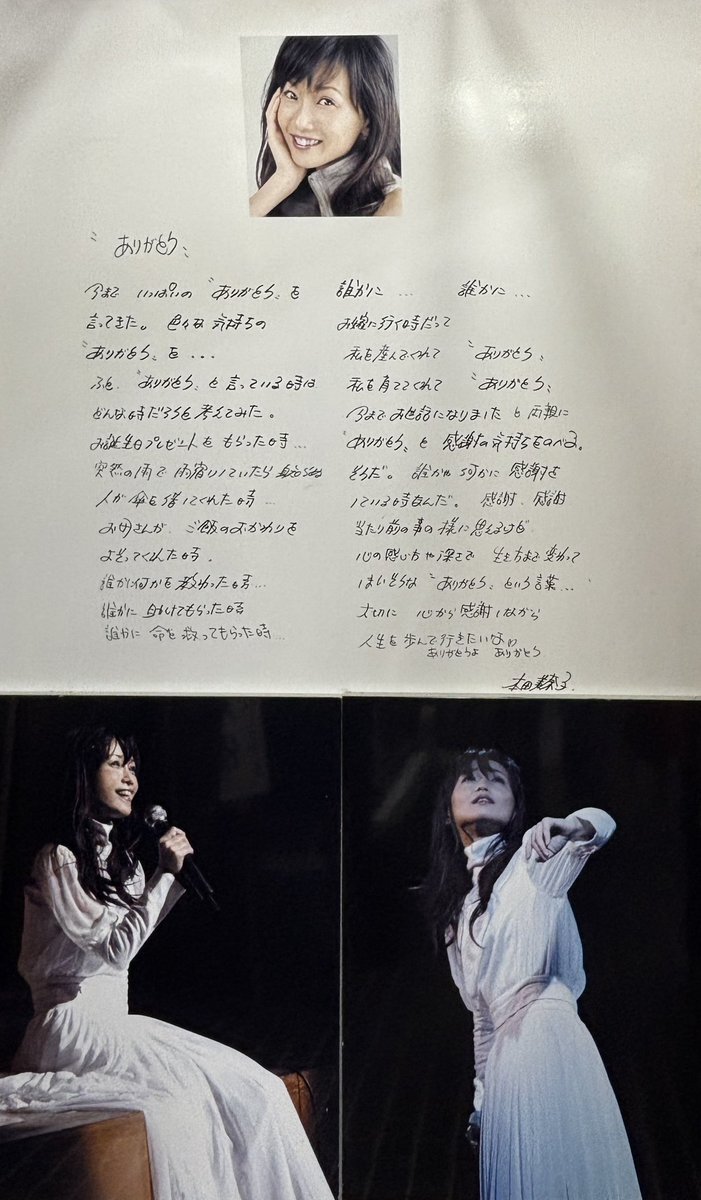 〝ありがとう〟
今まで いっぱいの 〝ありがとう〟を
言ってきた。 色々な 気持ちの
〝ありがとう〟を...
ふと、〝ありがとう〟と 言っている時は
どんな時だろうと考えてみた。
お誕生日プレゼントを もらった時...
突然の雨で 雨宿りしていたら 見知らぬ
人が 傘を貸してくれた時...
お母さんが、ご飯のおかわりを
よそってくれた時。
誰かに何かを 教わった時...
誰かに 助けてもらった時
誰かに 命を 救ってもらった時...
誰かに... 誰かに...
お嫁に行く時だって
私を産んでくれて 〝ありがとう〟
私を育ててくれて 〝ありがとう〟
今までお世話になりました と 両親に
〝ありがとう〟と 感謝の気持ちをのべる。
そうだ。 誰かや 何かに 感謝を
している時なんだ。 感謝、感謝
当たり前の事の様に思えるけど
心の感じ方や深さで 生き方まで 変わって
しまいそうな 〝ありがとう〟という言葉...
大切に 心から 感謝しながら
人生を 歩んで行きたいな。
ありがとうよ ありがとう
本田美奈子.